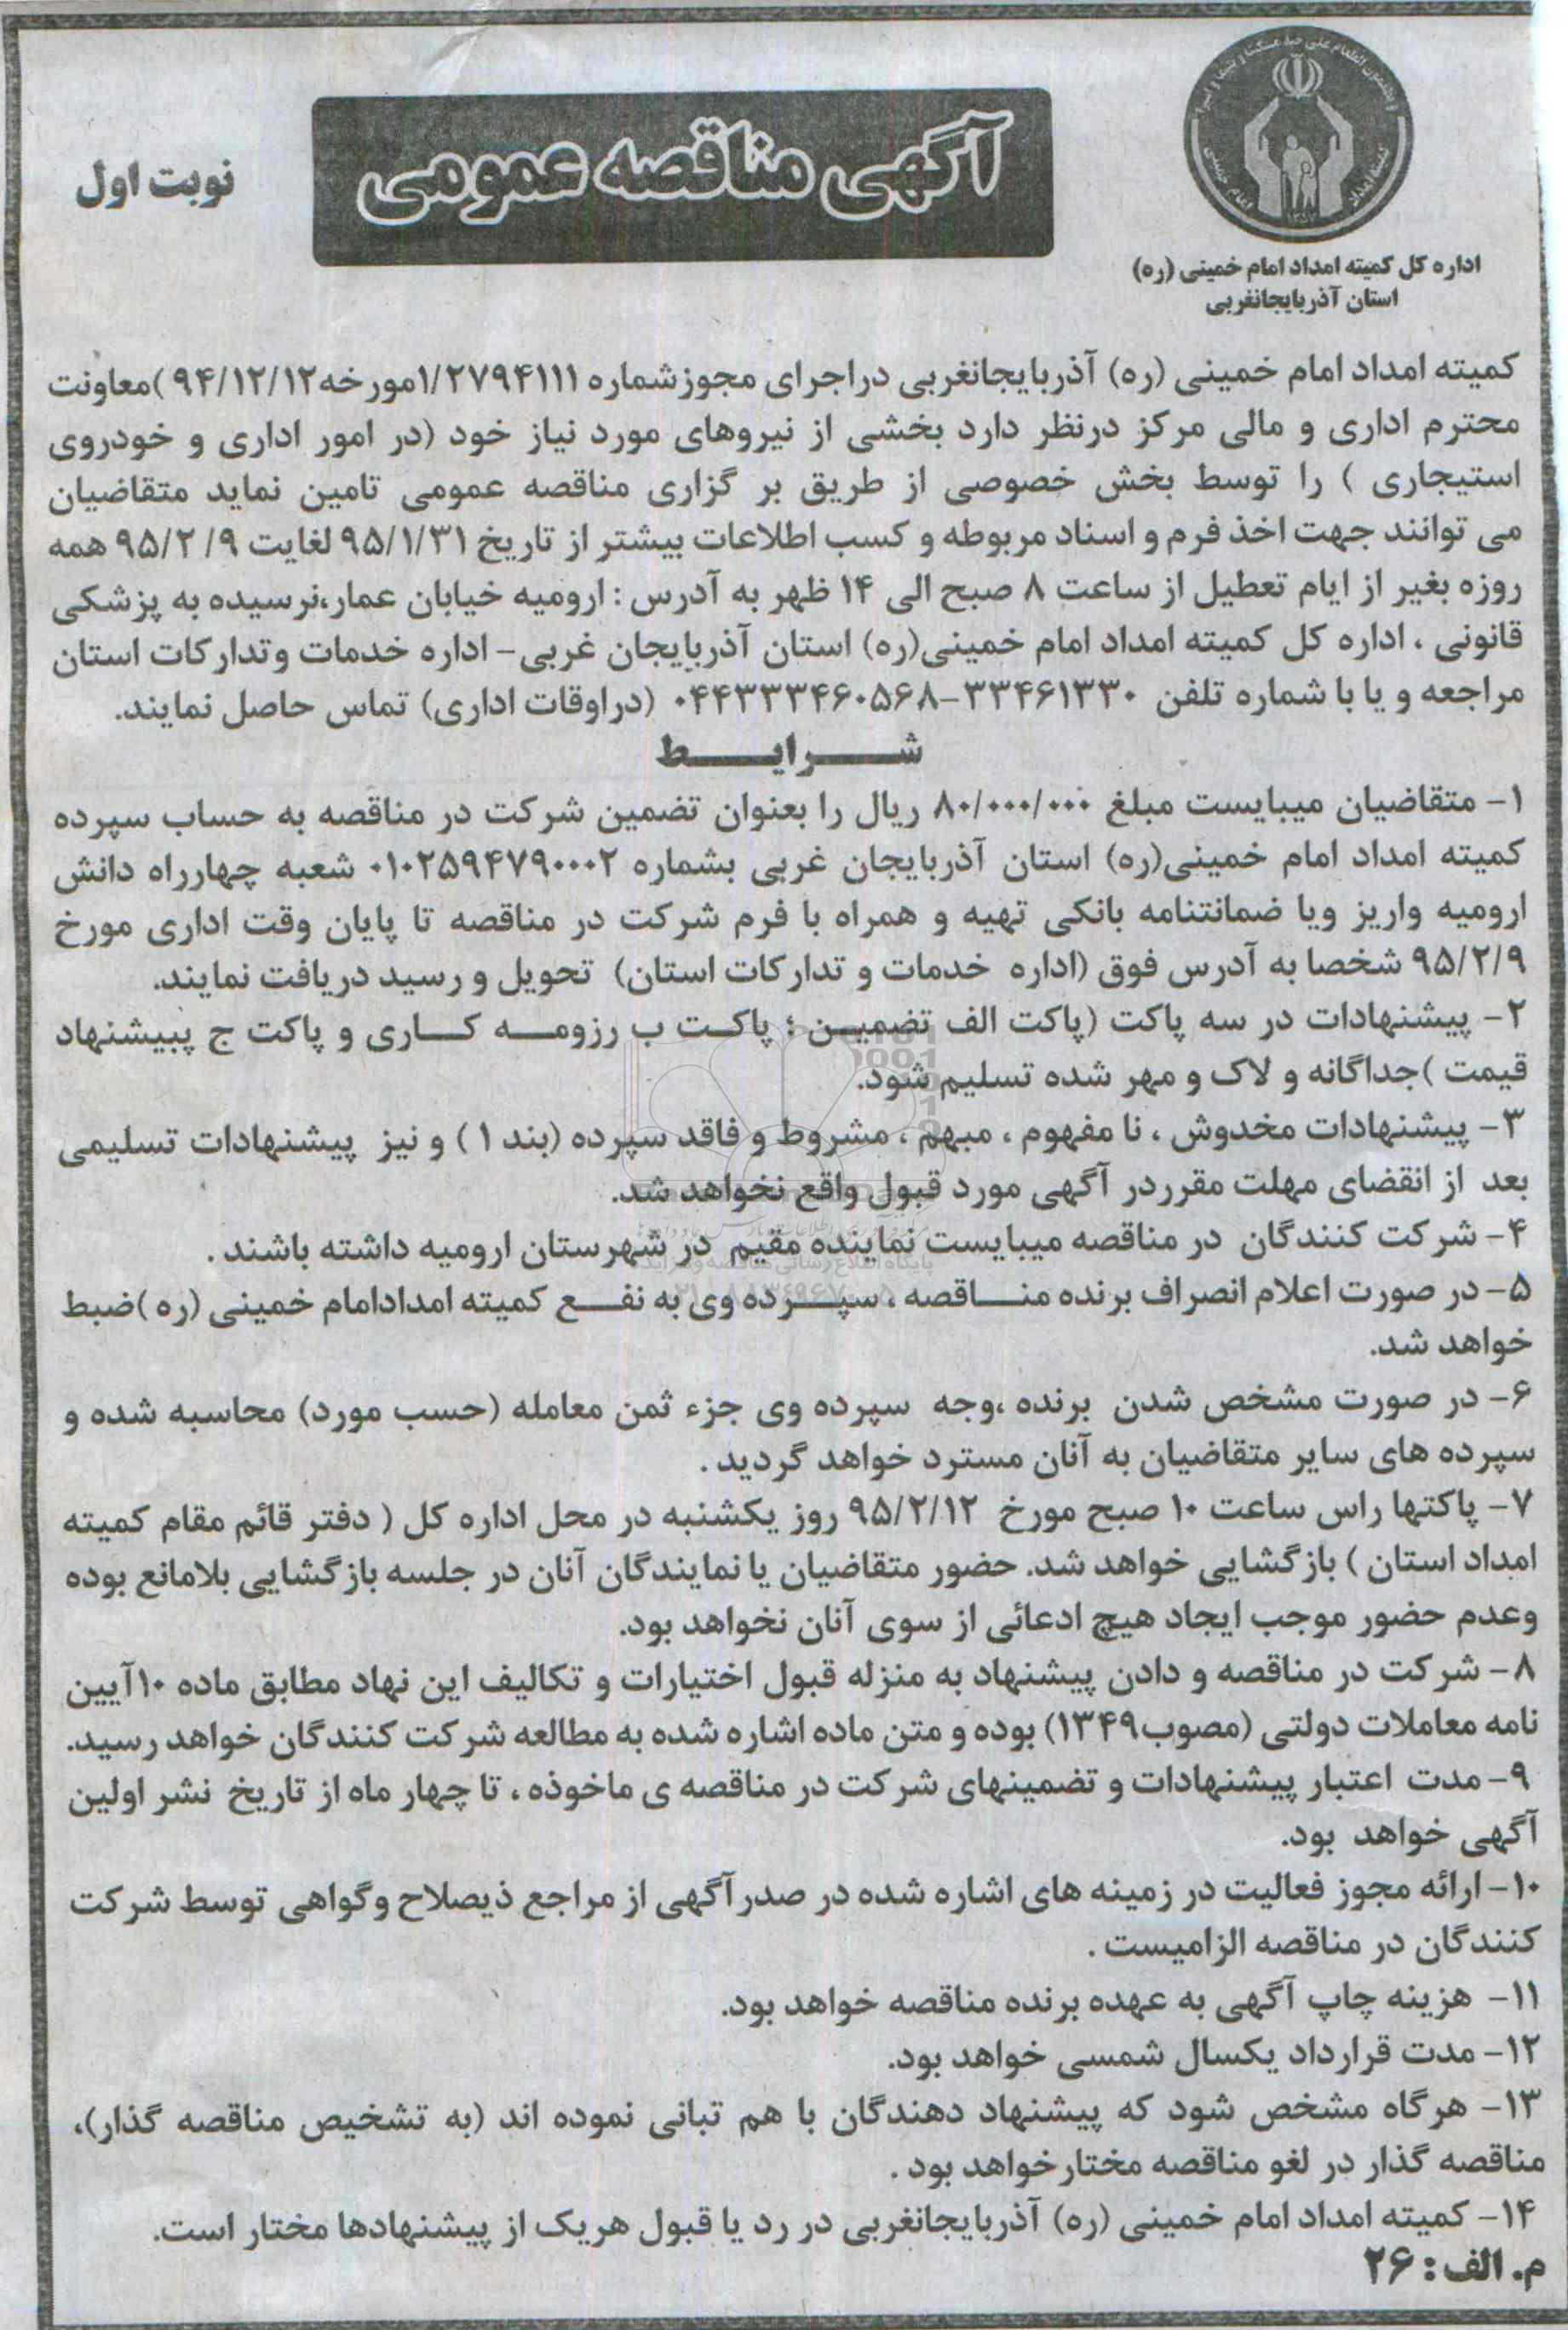 آگهی مناقصه عمومی
نوبت اول
اداره کل کمیته امداد امام خمینی (ره)
استان آذربایجانغربی
کمیته امداد امام خمینی (ره) آذربایجانغربی دراجرای مجوزشماره ۱/۲۷۹۴۱۱۱مورخه۹۴/۱۲/۱۲)معاونت
محترم اداری و مالی مرکز درنظر دارد بخشی از نیروهای مورد نیاز خود (در امور اداری و خودروی
استیجاری ) را توسط بخش خصوصی از طریق بر گزاری مناقصه عمومی تامین نماید متقاضیان
می توانند جهت اخذ فرم و اسناد مربوطه و کسب اطلاعات بیشتر از تاریخ ۹۵/۱/۳۱ لغایت ۹/ ۹۵/۲ همه
روزه بغیر از ایام تعطیل از ساعت ۸ صبح الی ۱۴ ظهر به آدرس : ارومیه خیابان عمار،نرسیده به پزشکی
قانونی ، اداره کل کمیته امداد امام خمینی(ره) استان آذربایجان غربی- اداره خدمات وتدارکات استان
مراجعه و یا با شماره تلفن ۳۳۴۶۱۳۳۰-۰۴۴۳۳۳۴۶۰۵۶۸ (دراوقات اداری) تماس حاصل نمایند.
شرایط
۱- متقاضیان میبایست مبلغ ۸۰/۰۰۰/۰۰۰ ریال را بعنوان تضمین شرکت در مناقصه به حساب سپرده
کمیته امداد امام خمینی(ره) استان آذربایجان غربی بشماره ۰۱۰۲۵۹۴۷۹۰۰۰۲ شعبه چهارراه دانش
ارومیه واریز ویا ضمانتنامه بانکی تهیه و همراه با فرم شرکت در مناقصه تا پایان وقت اداری مورخ
۹۵/۲/۹ شخصا به آدرس فوق (اداره خدمات و تدارکات استان) تحویل و رسید دریافت نمایند.
۲- پیشنهادات در سه پاکت (پاکت الف تضمین ؛ پاکت ب رزومه کاری و پاکت ج پبیشنهاد
قیمت )جداگانه و لاک و مهر شده تسلیم شود.
۳- پیشنهادات مخدوش ، نا مفهوم ، مبهم ، مشروط و فاقد سپرده (بند ۱ ) و نیز پیشنهادات تسلیمی
بعد از انقضای مهلت مقرردر آگهی مورد قبول واقع نخواهد شد.
۴- شرکت کنندگان در مناقصه میبایست نماینده مقیم در شهرستان ارومیه داشته باشند .
۵- در صورت اعلام انصراف برنده مناقصه ، سپرده وی به نفع کمیته امدادامام خمینی (ره )ضبط
خواهد شد.
۶- در صورت مشخص شدن برنده ،وجه سپرده وی جزء ثمن معامله (حسب مورد) محاسبه شده و
سپرده های سایر متقاضیان به آنان مسترد خواهد گردید .
۷- پاکتها راس ساعت ۱۰ صبح مورخ ۹۵/۲/۱۲ روز یکشنبه در محل اداره کل ( دفتر قائم مقام کمیته
امداد استان ) بازگشایی خواهد شد. حضور متقاضیان یا نمایندگان آنان در جلسه بازگشایی بلامانع بوده
وعدم حضور موجب ایجاد هیچ ادعائی از سوی آنان نخواهد بود.
۸- شرکت در مناقصه و دادن پیشنهاد به منزله قبول اختیارات و تکالیف این نهاد مطابق ماده ۱۰آیین
نامه معاملات دولتی (مصوب۱۳۴۹) بوده و متن ماده اشاره شده به مطالعه شرکت کنندگان خواهد رسید.
۹- مدت اعتبار پیشنهادات و تضمینهای شرکت در مناقصه ی ماخوذه ، تا چهار ماه از تاریخ نشر اولین
آگهی خواهد بود.
۱۰- ارائه مجوز فعالیت در زمینه های اشاره شده در صدرآگهی از مراجع ذیصلاح وگواهی توسط شرکت
کنندگان در مناقصه الزامیست .
۱۱- هزینه چاپ آگهی به عهده برنده مناقصه خواهد بود.
۱۲- مدت قرارداد یکسال شمسی خواهد بود.
۱۳- هرگاه مشخص شود که پیشنهاد دهندگان با هم تبانی نموده اند (به تشخیص مناقصه گذار)،
مناقصه گذار در لغو مناقصه مختارخواهد بود .
۱۴- کمیته امداد امام خمینی (ره) آذربایجانغربی در رد یا قبول هریک از پیشنهادها مختار است.
م. الف : ۲۶